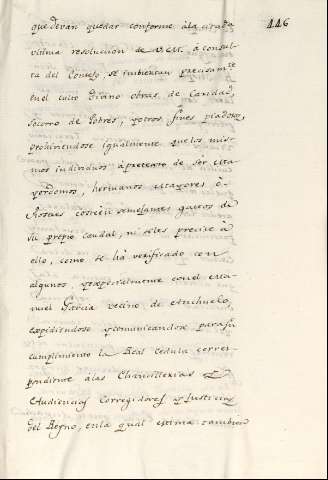 116
que deván quedar conforme àla citada
ultima resolucion de V.M. à consul-
ta del Consejo se imbiertan precisamte
en el culto divino obras de Caridad,
socorro de Pobres, y otros fines piadosos,
prohiviendose igualmente que los mis-
mos individuos à pretexto de ser Ma-
yordomos, hermanos mayores ò
Priostes costeen semejantes gastos de
su propio caudal, ni se les precise à
ello, como se há verificado con
algunos, y especialmente con el Ma-
nuel Garcia vecino de
expidiendose y comunicandose para su
cumplimiento la Real Cedula corres-
pondiente àlas Chancillerias
Audiencias Corregidores y Justicias
del Reyno, en la qual estima tambien